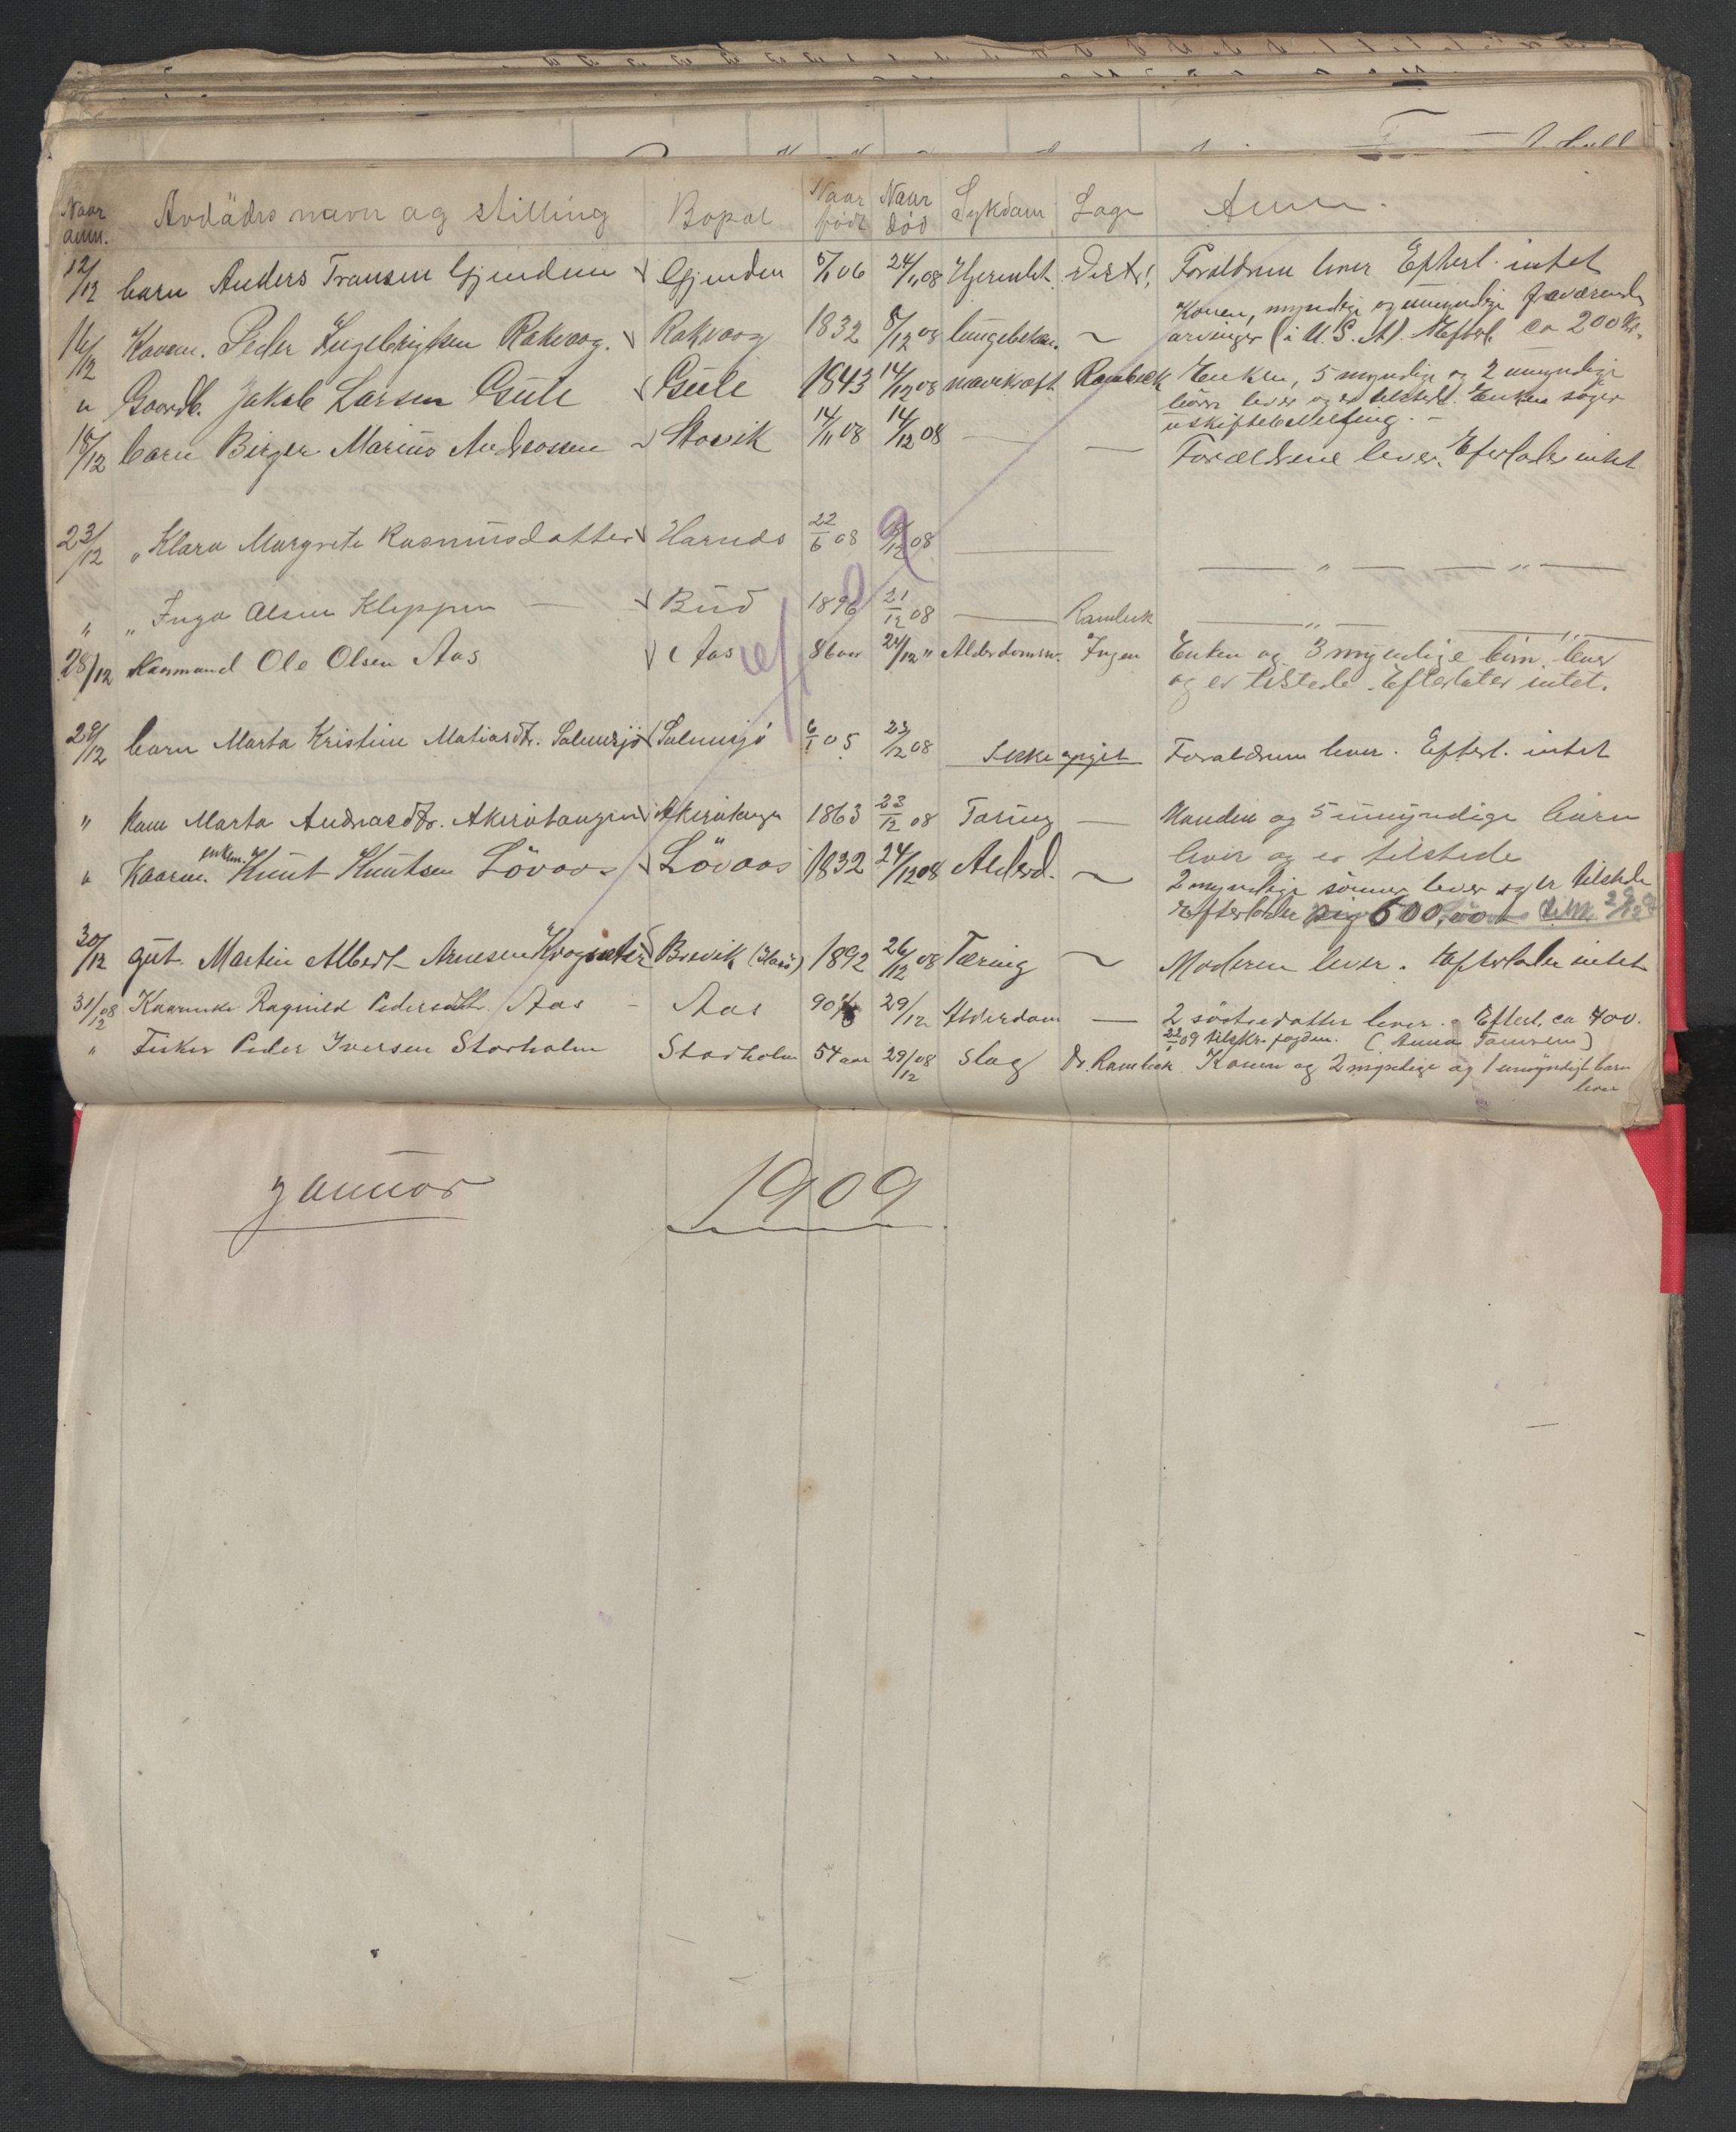 Naar anm. Avdødes navn og stilling Bopæl Naar født Naar død Sykdom Læge Anm.
12/12 barn Anders Fransen Gjendem Gjendem 5/1 06 24/11 08 Hjernebet.
Forældrene lever Efterl. intet
16/12 Kaarm. Peder Ingebrigtsen Rakvaag. Rakvaag 1832 8/12 08 lungebetæn. ~
Konen, myndige og umyndige fraværende
arvinger (i U.S.A). Efterl. ca 200 kr.
" Gaardb. Jakob Larsen Gule Gule 1843 14/12 08 mavekræft Rambæk Enken, 5 myndige og 2 umyndige
børn lever og er tilstede. Enken søger
uskiftebevilling. —
18/12 barn Birger Marius Andreassen Stavik 14/11 08 14/12 08 — — Forældrene lever. Efterlader intet
23/12 " Klara Margrete Rasmusdatter Harnæs 22/6 08 18/12 08 — — " — — " —
" " Inga Olsen Kleppen — Bud 1896 21/12 08 — Rambæk — " — — " —
28/12 Kaarmand Ole Olsen Aas Aas 86 aar 24/12 " Alderdomsv. Ingen Enken og 3 myndige børn lever
og er tilstede. Efterlater intet.
29/12 barn Marta Kristine Matiasdtr. Male Salensjø Salensjø 6/1 05 23/12 08 Ikke opgit Forældrene lever. Efterl. intet
" Kone Marta Andreasdtr. Akerøtangen Akerøtangen 1863 23/12 08 Tæring — Manden og 5 umyndige børn
lever og er tilstede
" Kaarm. enkem. Knut Knutsen Løvaas Løvaas 1832 24/12 08 Alderd. ~
2 myndige sønner lever og er tilstede
Efterlader sig 600,00
30/12 gut. Martin Albert Arnesen Krogsæter Brevik 1892 26/12 08 Tæring ~ Moderen lever. Efterlader intet
31/12 08 Kaarenke Ragnild Pedersdtr. Aas — Aas 90 29/12 Alderdom — 2 søsterdøtter lever. Efterl. ca 400.
22/1 09 tilskr. fogden. (Anna
" Fisker Peder Iversen Storholm Storholm 54 aar 29/12 08 Slag Dr. Rambæk Konen og 2 myndige og 1 umyndigt barn
lever
Januar 1909